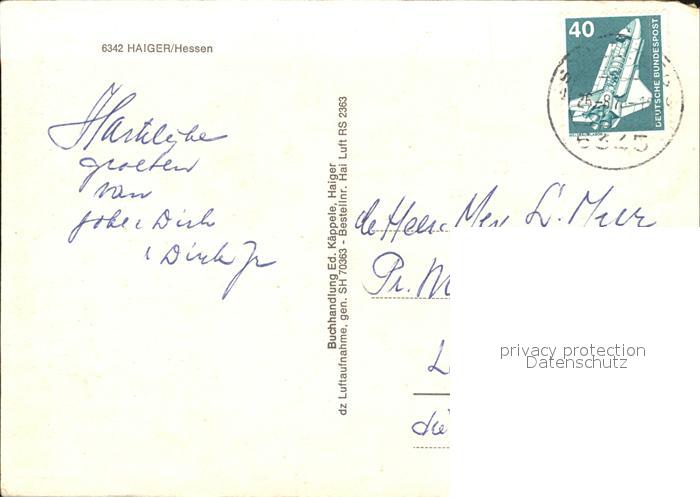 6342 HAIGER/Hessen
Hartelijke
groeten
van
Joke & Dirk
& Dirk Jr
Buchhandlung Ed. Käppele, Haiger
dz Luftaufnahme, gen. SH 70363 - Bestellnr. Hai Luft RS 2363
40
DEUTSCHE BUNDESPOST
6345
de Heer Mevr
Pr. M
privacy protection
Datenschutz